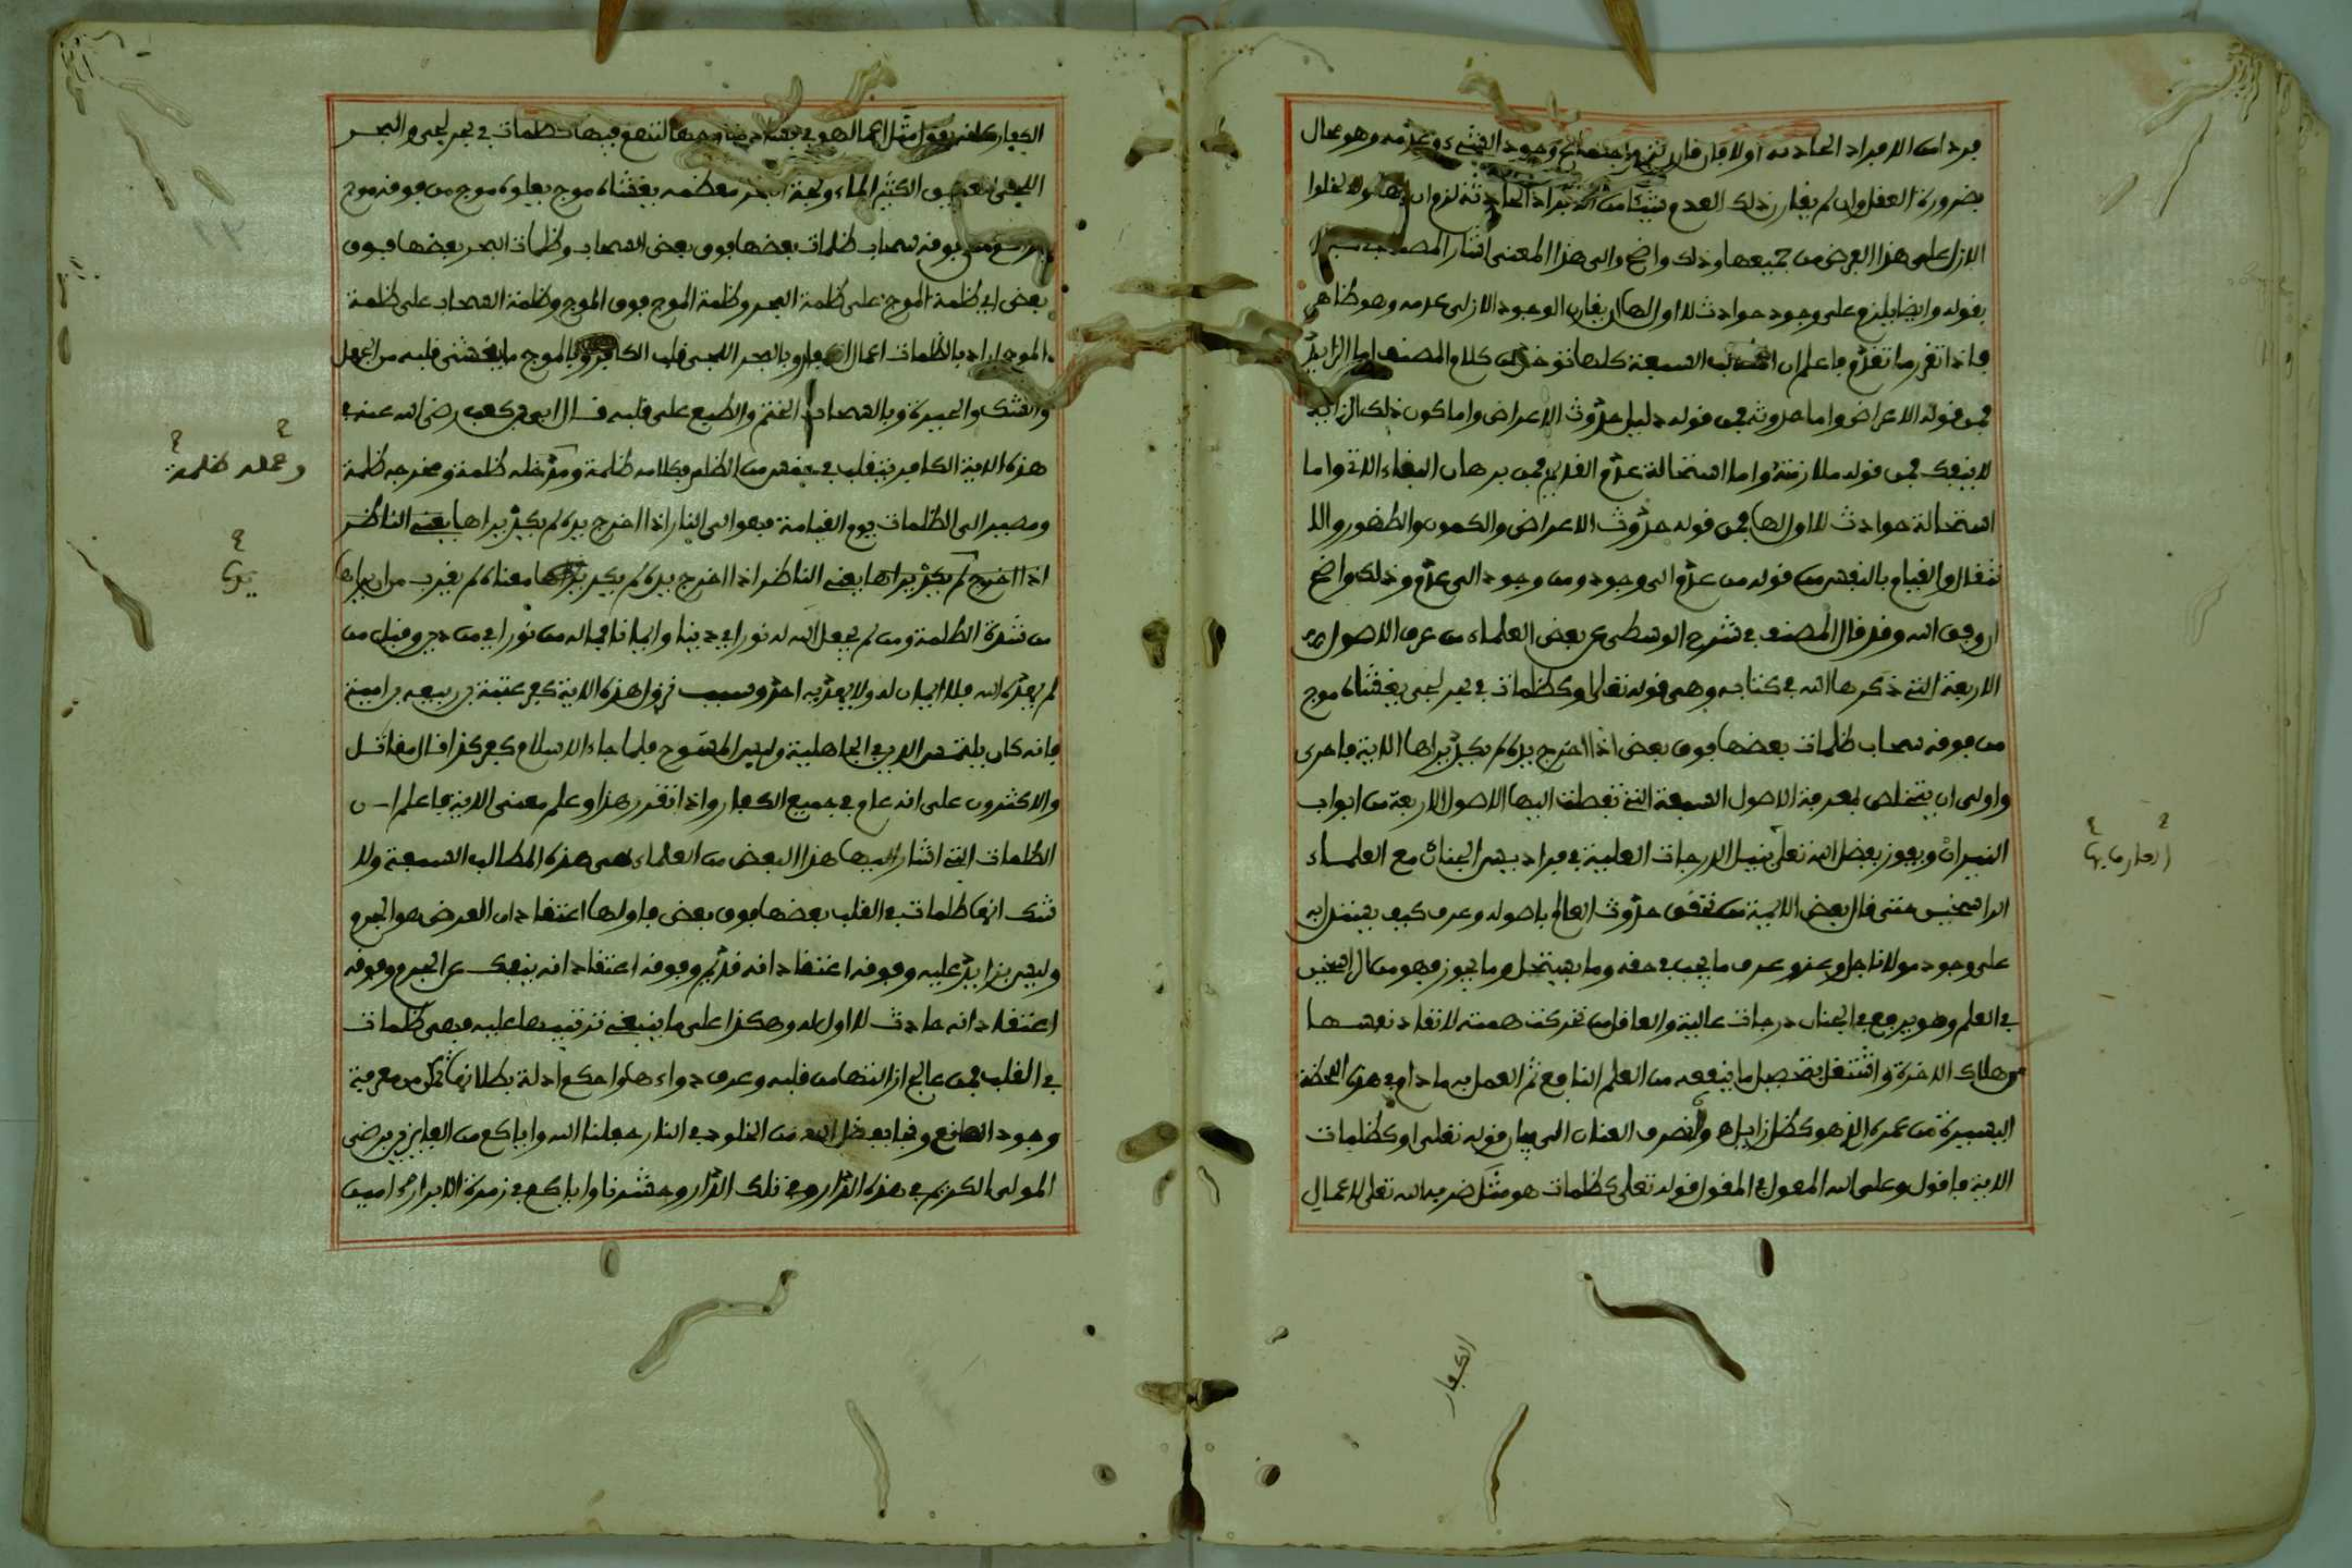 فرد من الافراد الحادثة أولا فإن قارن لزم اجتماع وجود الشيء وعدمه وهو محال
بضرورة العقل وان لم يقارن ذلك العدم شيئا من الافراد الحادثة لزم ان
الازل على هذا الفرض من جميعها وذلك واضح والى هذا المعنى اشار المصنف
بقوله وايضا يلزم على وجود حوادث لا اول لها ان يقارن الوجود الازلي عدمه وهو ظاهر
فاذا تقرر ما تقدم فاعلم ان المطالب السبعة كلها تؤخذ من كلام المصنف اما الزايد
فمن قوله الاعراض واما حدوثه فمن قوله دليل حدوث الاعراض واما كون ذلك الزايد
لا ينفك فمن قوله ملازمته واما استحالة عدم القديم فمن برهان البقاء الاتي واما
استحالة حوادث لا اول لها فمن قوله حدوث الاعراض والكمون والظهور والا
نتقال والقيام بالنفس من قوله من عدم الى وجود ومن وجود الى عدم وذلك واضح
ان وفق الله وقد قال المصنف في شرح الوسطى عن بعض العلماء من عرف الاصول
الاربعة التي ذكرها الله في كتابه وهي قوله تعالى او كظلمات في بحر لجي يغشاه موج
من فوقه سحاب ظلمات بعضها فوق بعض اذا اخرج يده لم يكد يراها الاية فاحرى
واولى ان يتخلص لمعرفة الاصول السبعة التي تفطنت اليها الاصول الاربعة من ابواب
النيران ويفوز بفضل الله تعلى بنيل الدرجات العلية في فراديس الجنان مع العلماء
الراسخين حتى قال بعض الايمة من تحقق حدوث العالم باصوله وعرف كيف يستدل به
على وجود مولانا جل وعز وعرف ما يجب في حقه وما يستحيل وما يجوز فهو من الراسخين
في العلم وهو يرفع في الجنان درجات عالية والعاقل من تحركت همته لانقاذ نفسه
من هلاك الاخرة واشتغل بتحصيل ما ينفعه من العلم النافع ثم العمل به ما دام في هذه اللحظة
اليسيرة من عمره الذي هو كظل زايل ولنصرف العنان الى بيان قوله تعلى او كظلمات
الاية فاقول وعلى الله المعول في المقول قوله تعلى كظلمات هو مثل ضربه الله تعلى لاعمال
العارف بها
الكفار
الكفار يقول مثل اعمالهم في فسادها وجهالتهم فيها كظلمات في بحر لجي والبحر
اللجي العميق الكثير الماء ولجة البحر معظمه يغشاه موج يعلوه موج من فوقه موج
من فوقه سحاب ظلمات بعضها فوق بعض السحاب وظلمات البحر بعضها فوق
بعض اي ظلمة الموج على ظلمة البحر وظلمة الموج فوق الموج وظلمة السحاب على ظلمة
الموج اراد بالظلمات اعمال الكفار وبالبحر اللجي قلب الكافر وبالموج ما يغشى قلبه من الجهل
والشك والحيرة وبالسحاب الختم والطبع على قلبه قال ابي بن كعب رضي الله عنه في
هذه الاية الكافر يتقلب في خمس من الظلم فكلامه ظلمة ومدخله ظلمة ومخرجه ظلمة
ومصيره الى الظلمات يوم القيامة فهو الى النار اذا اخرج يده لم يكد يراها يعني الناظر
اذا اخرج لم يكد يراها يعني الناظر اذا اخرج يده لم يكد يراها معناه لم يقرب من ان يراها
من شدة الظلمة ومن لم يجعل الله له نورا اي دينا وايمانا فما له من نور اي من دين وقيل من
لم يهده الله فلا ايمان له ولا يهديه احد وسبب نزول هذه الاية كفر عتبة بن ربيعة بن امية
فانه كان يلتمس الدين في الجاهلية ولبس المسوح فلما جاء الاسلام كفر كذا قال مقاتل
والاكثرون على انه عام في جميع الكفار واذا تقرر هذا وعلم معنى الاية فاعلم ان
الظلمات التي اشار اليها هذا البعض من العلماء هي هذه المطالب السبعة ولا
شك انها ظلمات في القلب بعضها فوق بعض فاولها اعتقاد ان العرض هو الجرم
وليس بزايد عليه وفوقه اعتقاد انه قديم وفوقه اعتقاد انه ينفك عن الجرم وفوقه
اعتقاد انه حادث لا اول له وهكذا على ما ينبغي ترتيبها عليه فهي ظلمات
في القلب فمن عالج ازالتها من قلبه وعرف دواءها واحكم ادلة بطلانها تمكن من معرفة
وجود الصانع ونجا بفضل الله من الخلود في النار جعلنا الله واياكم من الفايزين برضى
المولى الكريم في هذه الدار وفي تلك الدار وحشرنا واياكم في زمرة الابرار امين
وعمله ظلمة
يدها